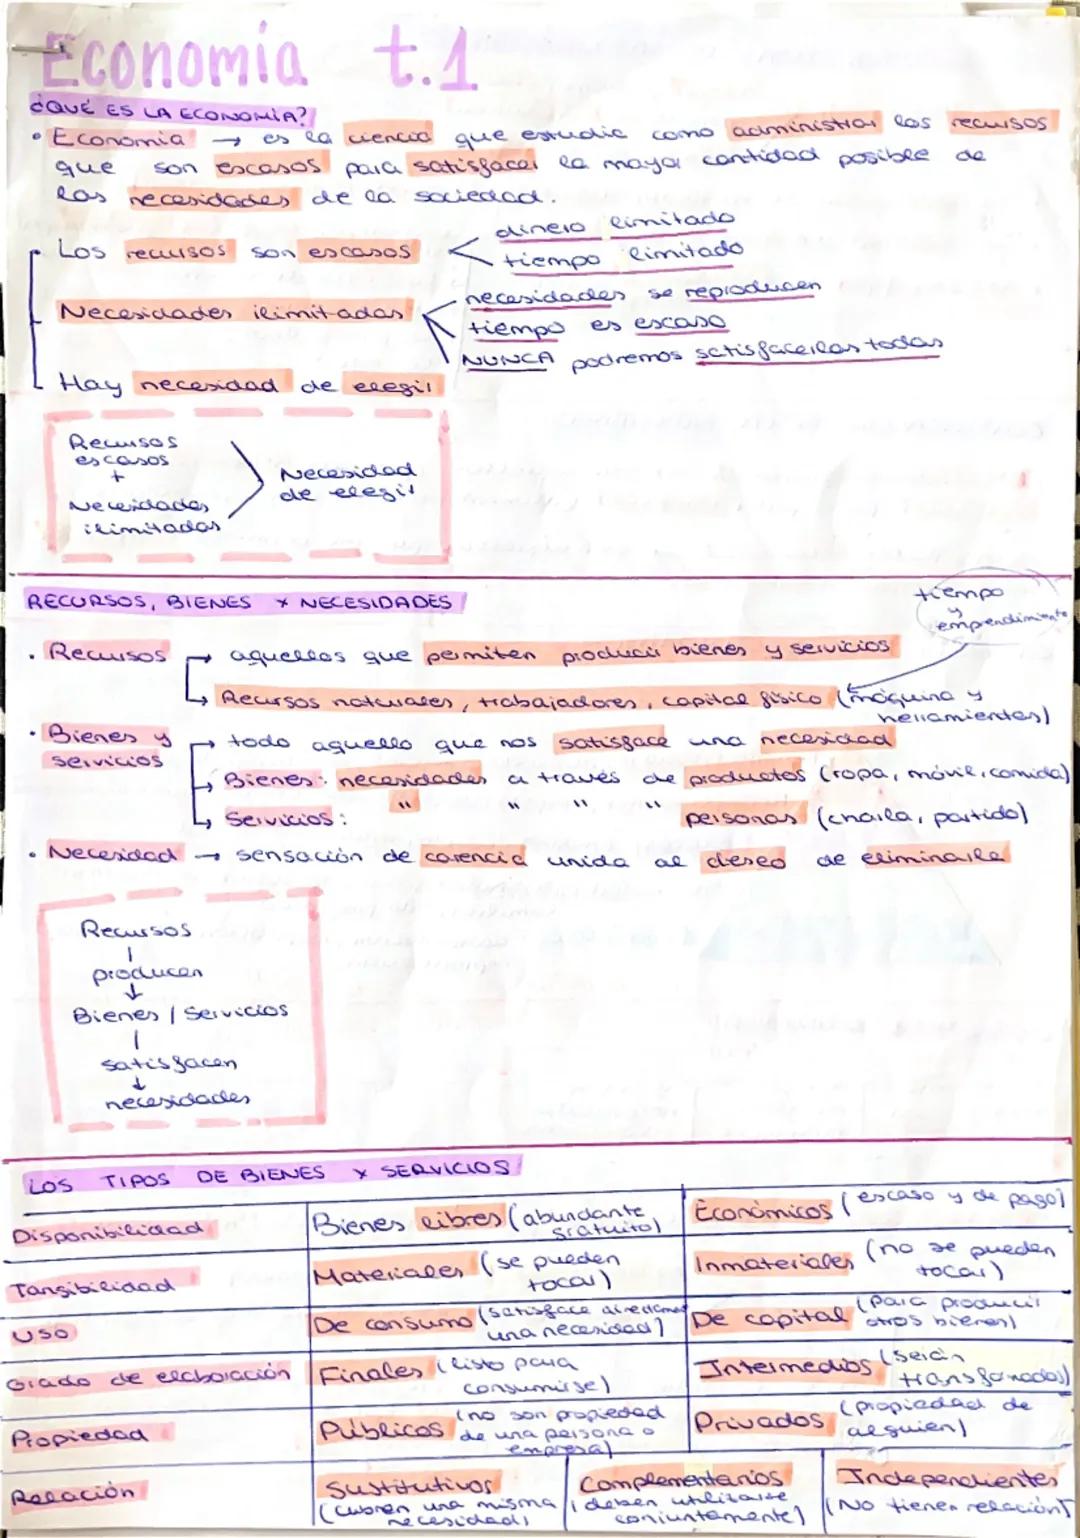 Economía t.1
¿QUÉ ES LA ECONOMÍA?
• Economía → es la ciencia que estudia como administrar los recursos
que son escasos para satisfacer la mayor cantidad posible de
las necesidades de la sociedad.
• Los recursos son escasos
dinero limitado
tiempo limitado
Necesidades ilimitadas
necesidades se reproducen
tiempo es escaso
NUNCA podremos satisfacerlas todas
Hay necesidad de elegir
Recursos
escasos
+
Necesidades
ilimitadas
Necesidad
de elegir
RECURSOS, BIENES Y NECESIDADES
tiempo
y
emprendimiento
• Recursos → aquellos que permiten producir bienes y servicios
→ Recursos naturales, trabajadores, capital físico (máquina y
herramientas)
• Bienes y
servicios
→ todo aquello que nos satisface una necesidad
→ Bienes: necesidades a través de productos (ropa, móvil, comida)
→ Servicios: " " " " personas (charla, partido)
• Necesidad → sensación de carencia unida al deseo de eliminarla
Recursos
producen
↓
Bienes / Servicios
satisfacen
↓
necesidades
LOS TIPOS DE BIENES Y SERVICIOS
Disponibilidad
Bienes libres (abundante,
gratuito)
Económicos (escaso y de pago)
Tangibilidad
Materiales (se pueden
tocar)
Inmateriales (no se pueden
tocar)
Uso
De consumo (satisface
una necesidad)
De capital (para producir
otros bienes)
Grado de elaboración
Finales (listo para
consumirse)
Intermedios (serán
transformados)
Propiedad
Públicos (no son propiedad
de una persona o
empresa)
Privados (propiedad de
alguien)
Relación
Sustitutivos
(cubren una misma
necesidad)
Complementarios
(deben utilizarse
conjuntamente)
Independientes
(No tienen relación)